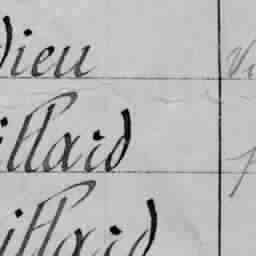 Dieu
illard
illard